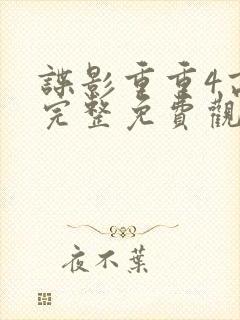 諜影重重4
完整免費觀
夜不葉